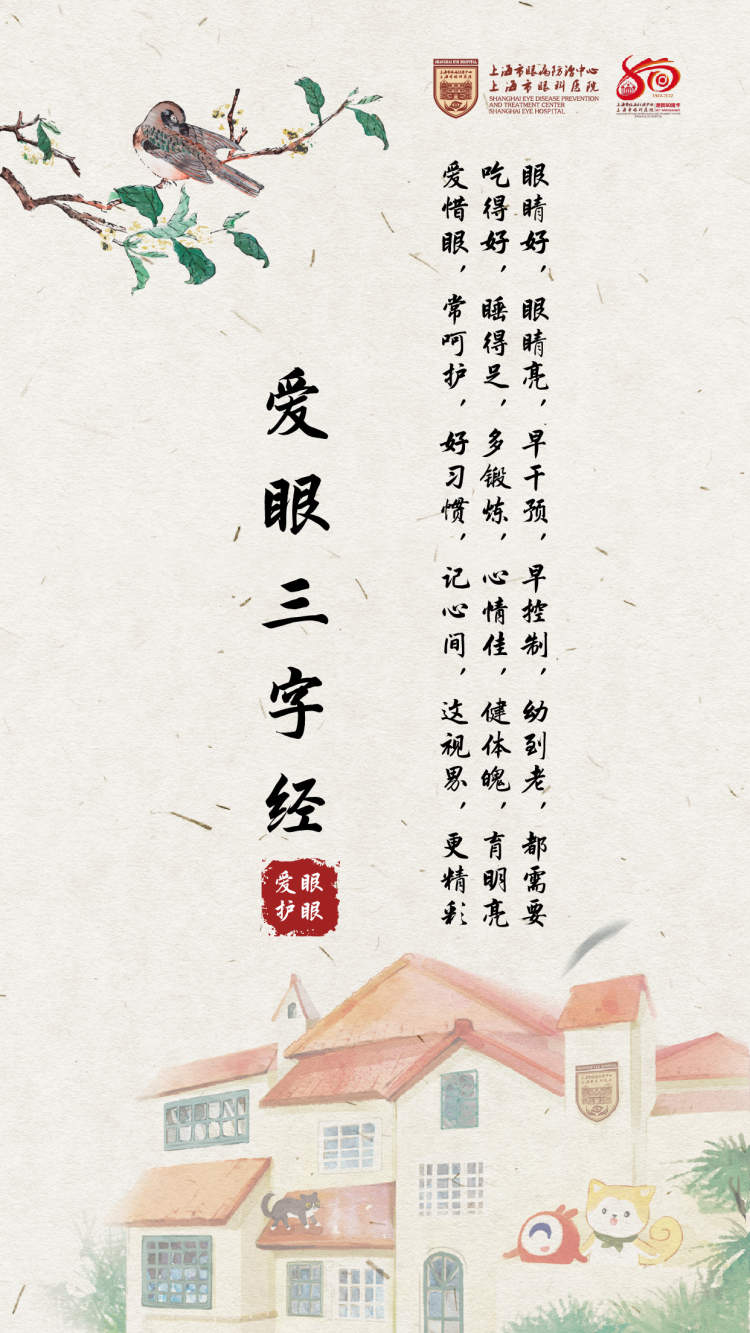 SHANGHAI EYE HOSPITAL
上海市眼病防治中心
上海市眼科医院
SHANGHAI EYE DISEASE PREVENTION
AND TREATMENT CENTER
SHANGHAI EYE HOSPITAL
80
眼睛好，眼睛亮，早干预，早控制，幼到老，都需要
吃得好，睡得足，多锻炼，心情佳，健体魄，育明亮
爱惜眼，常呵护，好习惯，记心间，这视界，更精彩
爱眼三字经
爱眼
护眼